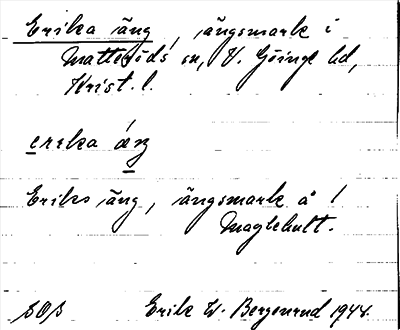 Erika äng, ängsmark i
Matteröds sn, V. Göinge hd,
Krist. l.
erika äŋ
Eriks äng, ängsmark å
Maglehult.
Erik W. Bergenrud 1944.